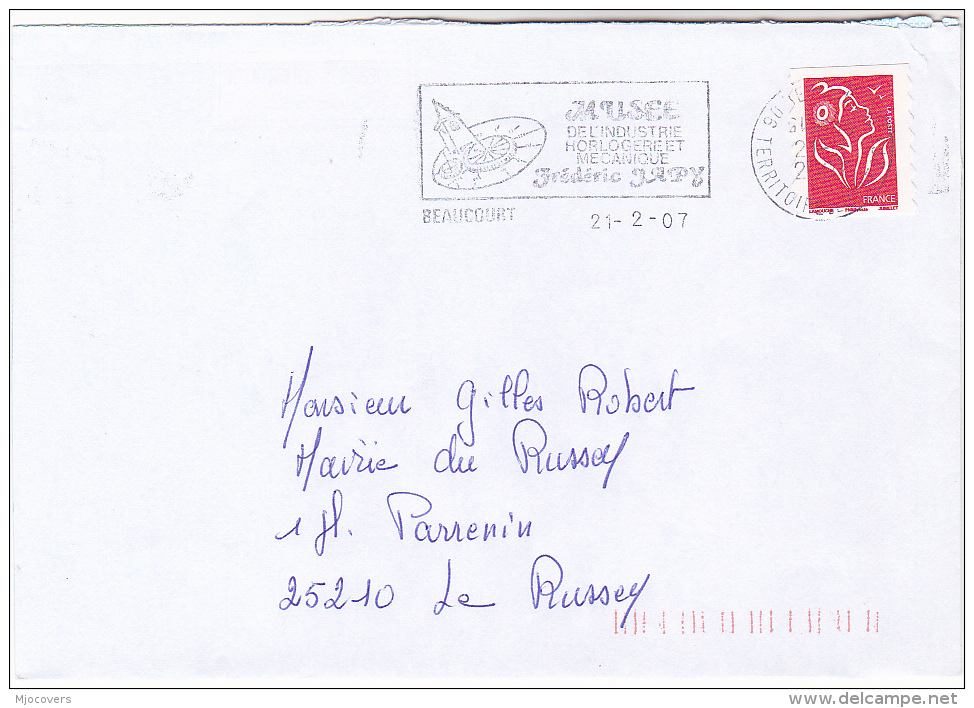 MUSEE
DE L'INDUSTRIE
HORLOGERE ET
MECANIQUE
Frédéric JAPY
BEAUCOURT
21-2-07
TERRITOI
LA POSTE
FRANCE
LAMOUCHE PHIL@POSTE JUMELET
Monsieur Gilles Robert
Mairie du Russey
1 Pl. Parrenin
25210 Le Russey
Mjocovers
www.delcampe.net